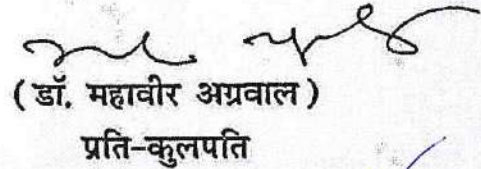 (डॉ. महावीर अग्रवाल)
प्रति-कुलपति